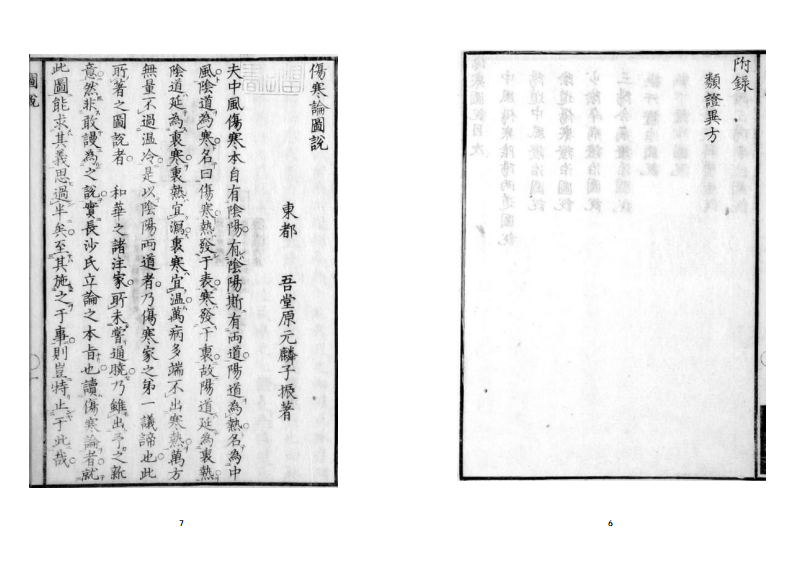 附録
類證異方
6
傷寒論圖說
東都 吾堂原元麟子振著
夫中風傷寒本自有陰陽有陰陽斯有兩道陽道為熱名為中
風陰道為寒名曰傷寒熱發于表寒發于裏故陽道延為裏熱
陰道延為裏寒裏熱宜瀉裏寒宜温萬病多端不出寒熱萬方
無量不過温冷是以陰陽兩道者乃傷寒家之第一議諦也此
所著之圖說者 和華之諸注家所未嘗通曉乃雖出予之新
意然非敢謾為之說實長沙氏立論之本旨也讀傷寒論者就
此圖能求其義思過半矣至其施之于事則豈特止于此哉
圖說
一
7